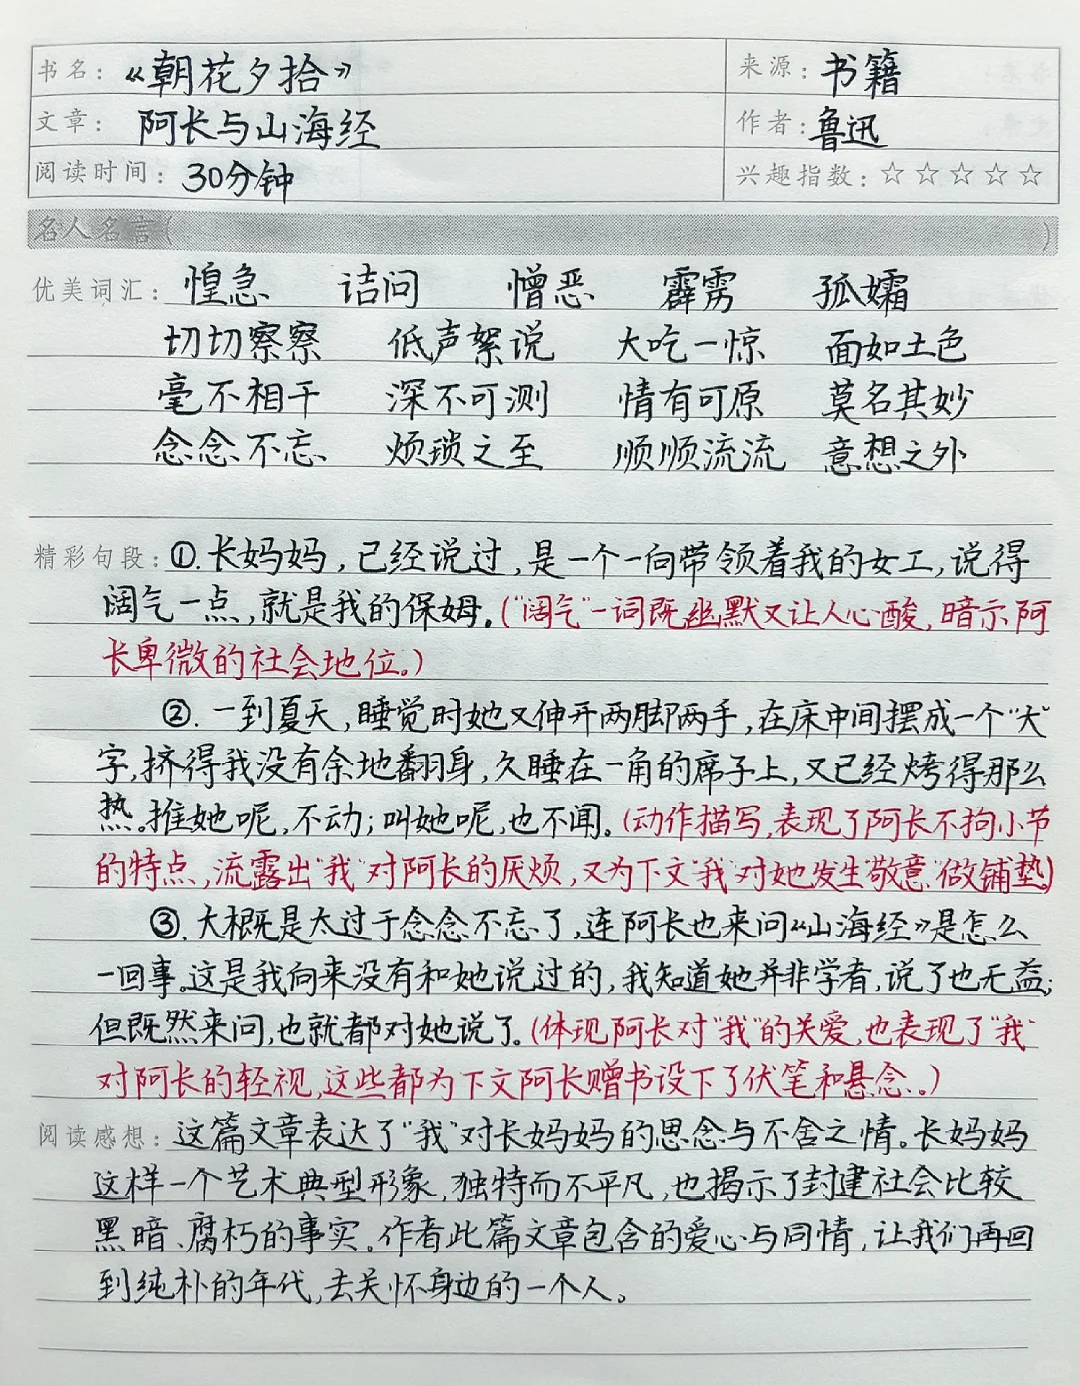 书名：《朝花夕拾》 来源：书籍
文章：阿长与山海经 作者：鲁迅
阅读时间：30分钟 兴趣指数：☆☆☆☆☆
名人名言（ ）
优美词汇：惶急 诘问 憎恶 霹雳 孤孀
切切察察 低声絮说 大吃一惊 面如土色
毫不相干 深不可测 情有可原 莫名其妙
念念不忘 烦琐之至 顺顺流流 意想之外
精彩句段：①.长妈妈，已经说过，是一个一向带领着我的女工，说得
阔气一点，就是我的保姆。（“阔气”一词既幽默又让人心酸，暗示阿
长卑微的社会地位。）
②.一到夏天，睡觉时她又伸开两脚两手，在床中间摆成一个“大”
字，挤得我没有余地翻身，久睡在一角的席子上，又已经烤得那么
热。推她呢，不动；叫她呢，也不闻。（动作描写，表现了阿长不拘小节
的特点，流露出“我”对阿长的厌烦，又为下文“我”对她发生“敬意”做铺垫。）
③.大概是太过于念念不忘了，连阿长也来问《山海经》是怎么
一回事。这是我向来没有和她说过的，我知道她并非学者，说了也无益；
但既然来问，也就都对她说了。（体现阿长对“我”的关爱，也表现了“我”
对阿长的轻视，这些都为下文阿长赠书设下了伏笔和悬念。）
阅读感想：这篇文章表达了“我”对长妈妈的思念与不舍之情。长妈妈
这样一个艺术典型形象，独特而不平凡，也揭示了封建社会比较
黑暗、腐朽的事实。作者此篇文章包含的爱心与同情，让我们再回
到纯朴的年代，去关怀身边的一个人。